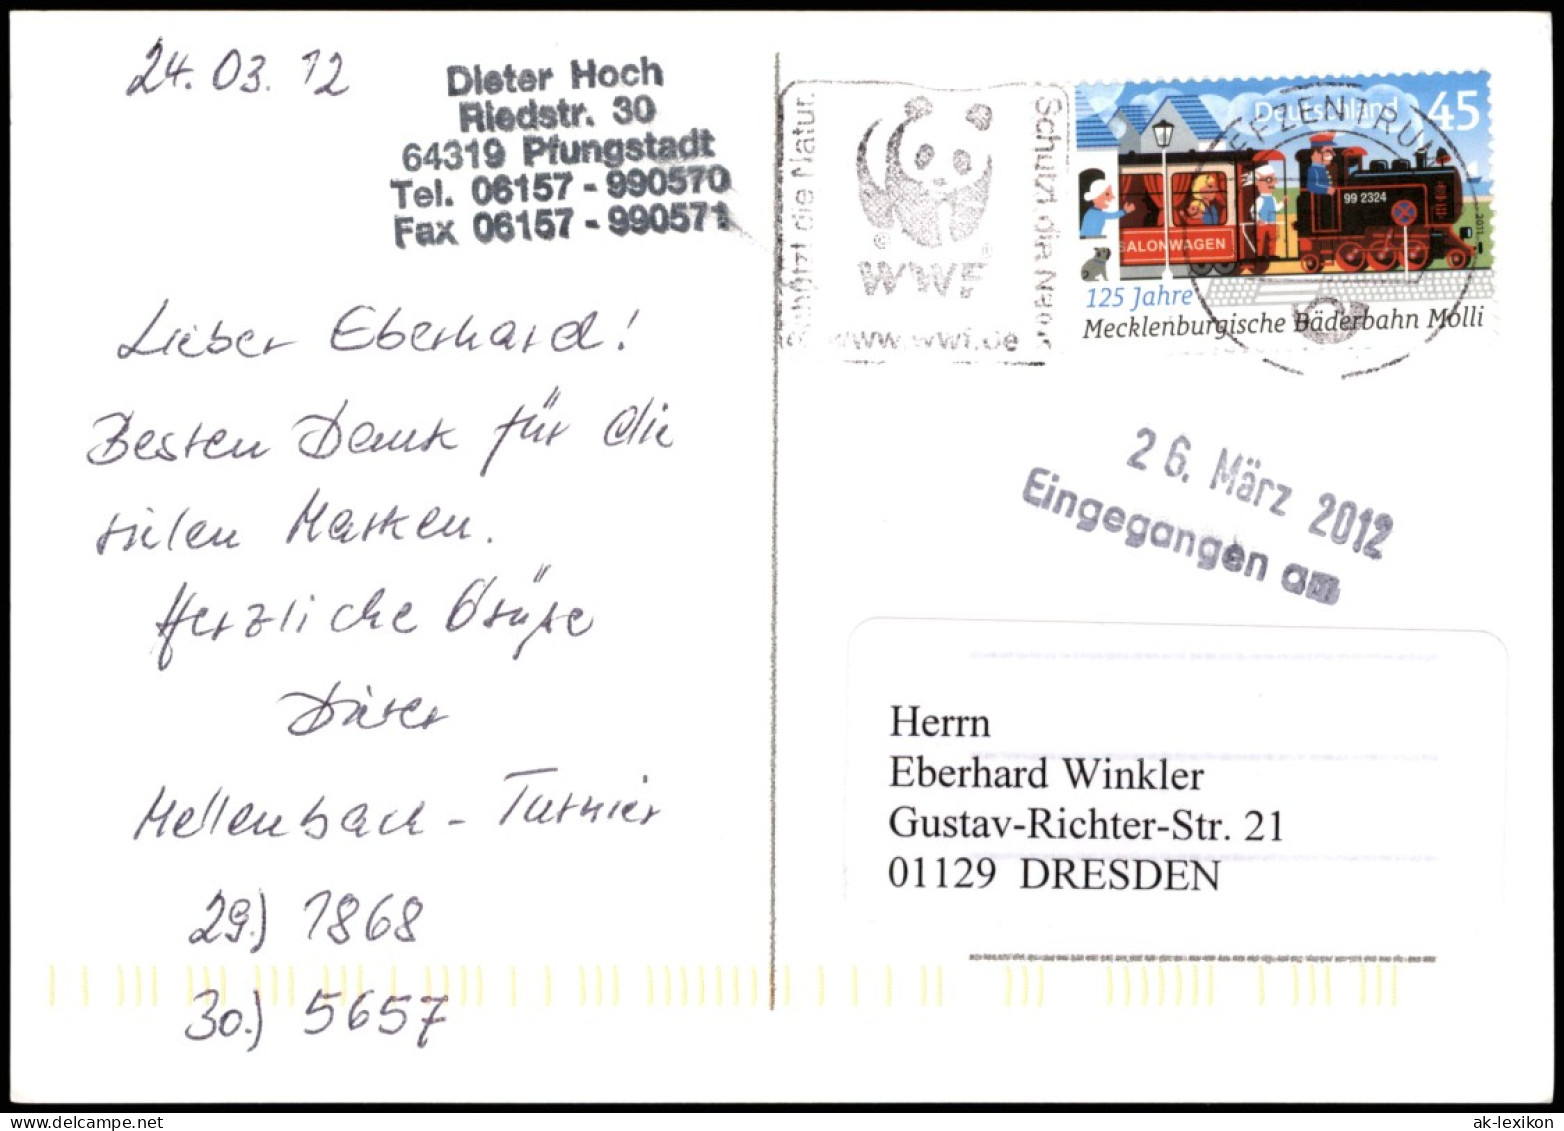 24.03.12
Dieter Hoch
Riedstr. 30
64319 Pfungstadt
Tel. 06157 - 990570
Fax 06157 - 990571
Lieber Eberhard!
Besten Dank für die
vielen Marken.
Herzliche Grüße
Dieter
Mellenbach - Turnier
29.) 1868
30.) 5657
Schützt die Natur.
WWF
www.wwf.de
Schützt die Natur
BRIEFZENTRUM
Deutschland 45
99 2324
SALONWAGEN
2011
125 Jahre
Mecklenburgische Bäderbahn Molli
26. März 2012
Eingegangen am
Herrn
Eberhard Winkler
Gustav-Richter-Str. 21
01129 DRESDEN
ak-lexikon